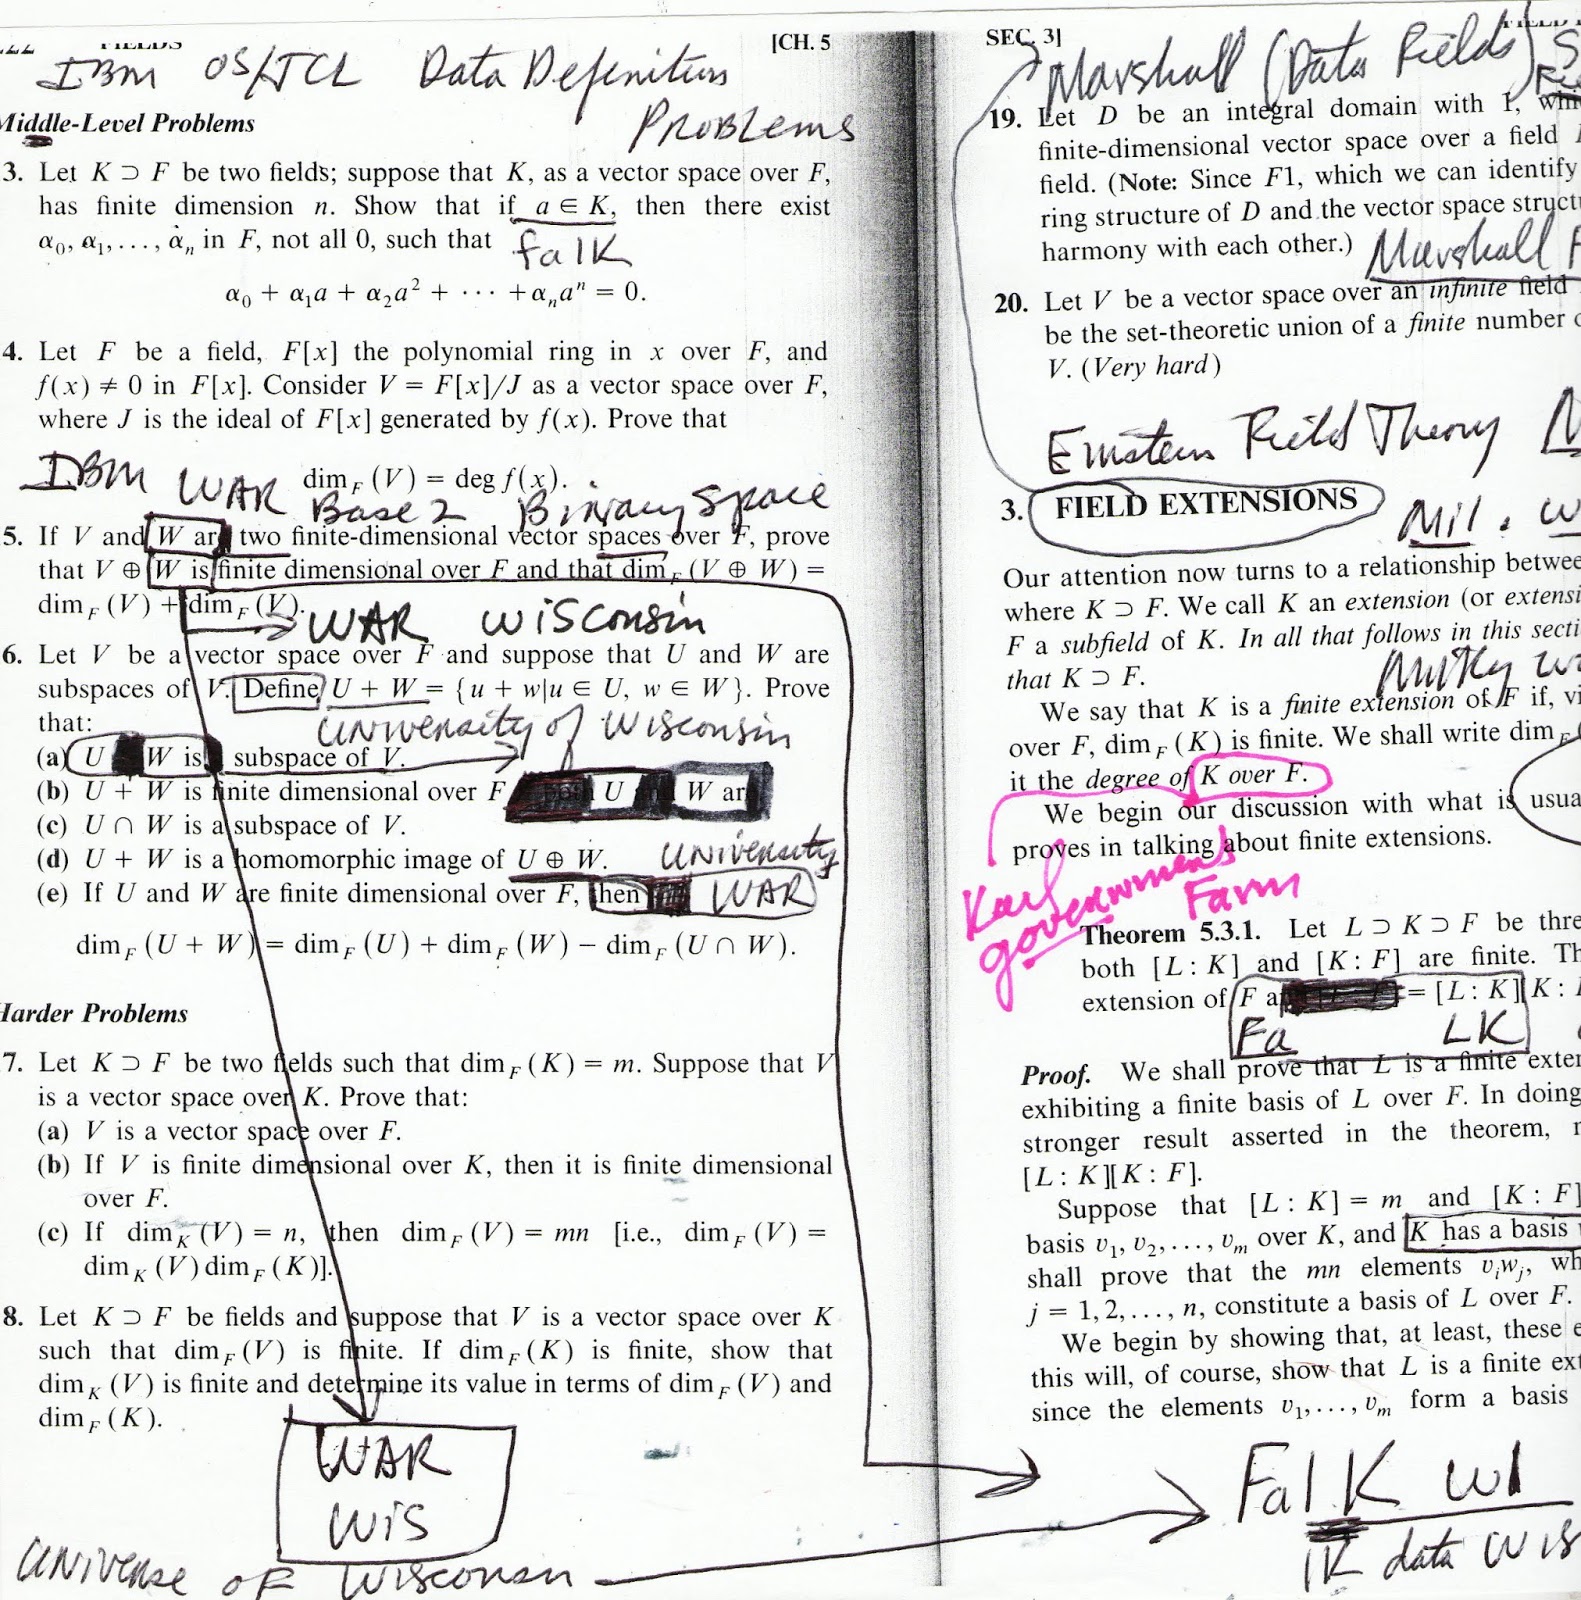 [CH. 5
IBM OS/JCL Data Definition
Problems
Middle-Level Problems
3. Let K ⊃ F be two fields; suppose that K, as a vector space over F,
has finite dimension n. Show that if a ∈ K, then there exist
α₀, α₁,..., αₙ in F, not all 0, such that
falK
α₀ + α₁a + α₂a² + ··· +αₙaⁿ = 0.
4. Let F be a field, F[x] the polynomial ring in x over F, and
f(x) ≠ 0 in F[x]. Consider V = F[x]/J as a vector space over F,
where J is the ideal of F[x] generated by f(x). Prove that
dim_F (V) = deg f(x).
IBM WAR Base 2 Binary Space
5. If V and W ar two finite-dimensional vector spaces over F, prove
that V ⊕ W is finite dimensional over F and that dim_F (V ⊕ W) =
dim_F (V) + dim_F (V).
WAR Wisconsin
6. Let V be a vector space over F and suppose that U and W are
subspaces of V. Define U + W = {u + w|u ∈ U, w ∈ W}. Prove
that:
University of Wisconsin
(a) U W is subspace of V.
(b) U + W is finite dimensional over F U W ar
(c) U ∩ W is a subspace of V.
(d) U + W is a homomorphic image of U ⊕ W. University
(e) If U and W are finite dimensional over F, then WAR
dim_F (U + W) = dim_F (U) + dim_F (W) − dim_F (U ∩ W).
Harder Problems
7. Let K ⊃ F be two fields such that dim_F (K) = m. Suppose that V
is a vector space over K. Prove that:
(a) V is a vector space over F.
(b) If V is finite dimensional over K, then it is finite dimensional
over F.
(c) If dim_K (V) = n, then dim_F (V) = mn [i.e., dim_F (V) =
dim_K (V) dim_F (K)].
8. Let K ⊃ F be fields and suppose that V is a vector space over K
such that dim_F (V) is finite. If dim_F (K) is finite, show that
dim_K (V) is finite and determine its value in terms of dim_F (V) and
dim_F (K).
WAR
WIS
Universe of Wisconsin
SEC. 3]
Marshall (Data Fields)
19. Let D be an integral domain with 1,
finite-dimensional vector space over a field
field. (Note: Since F1, which we can identify
ring structure of D and the vector space
harmony with each other.)
Marshall F
20. Let V be a vector space over an infinite field
be the set-theoretic union of a finite number
V. (Very hard)
Einstein Field Theory
3. FIELD EXTENSIONS
Mil. W
Our attention now turns to a relationship
where K ⊃ F. We call K an extension (or
F a subfield of K. In all that follows in this
that K ⊃ F.
Milky W
We say that K is a finite extension of F if,
over F, dim_F (K) is finite. We shall write dim_F
it the degree of K over F.
We begin our discussion with what is
proves in talking about finite extensions.
Karl
government
Farm
Theorem 5.3.1. Let L ⊃ K ⊃ F be
both [L : K] and [K : F] are finite.
extension of F a = [L : K][K :
Fa LK
Proof. We shall prove that L is a finite
exhibiting a finite basis of L over F. In doing
stronger result asserted in the theorem,
[L : K][K : F].
Suppose that [L : K] = m and [K : F]
basis v₁, v₂,..., vₘ over K, and K has a basis
shall prove that the mn elements vᵢwⱼ,
j = 1, 2,..., n, constitute a basis of L over F.
We begin by showing that, at least, these
this will, of course, show that L is a finite
since the elements v₁,..., vₘ form a basis
FalK WI
1K data WIS